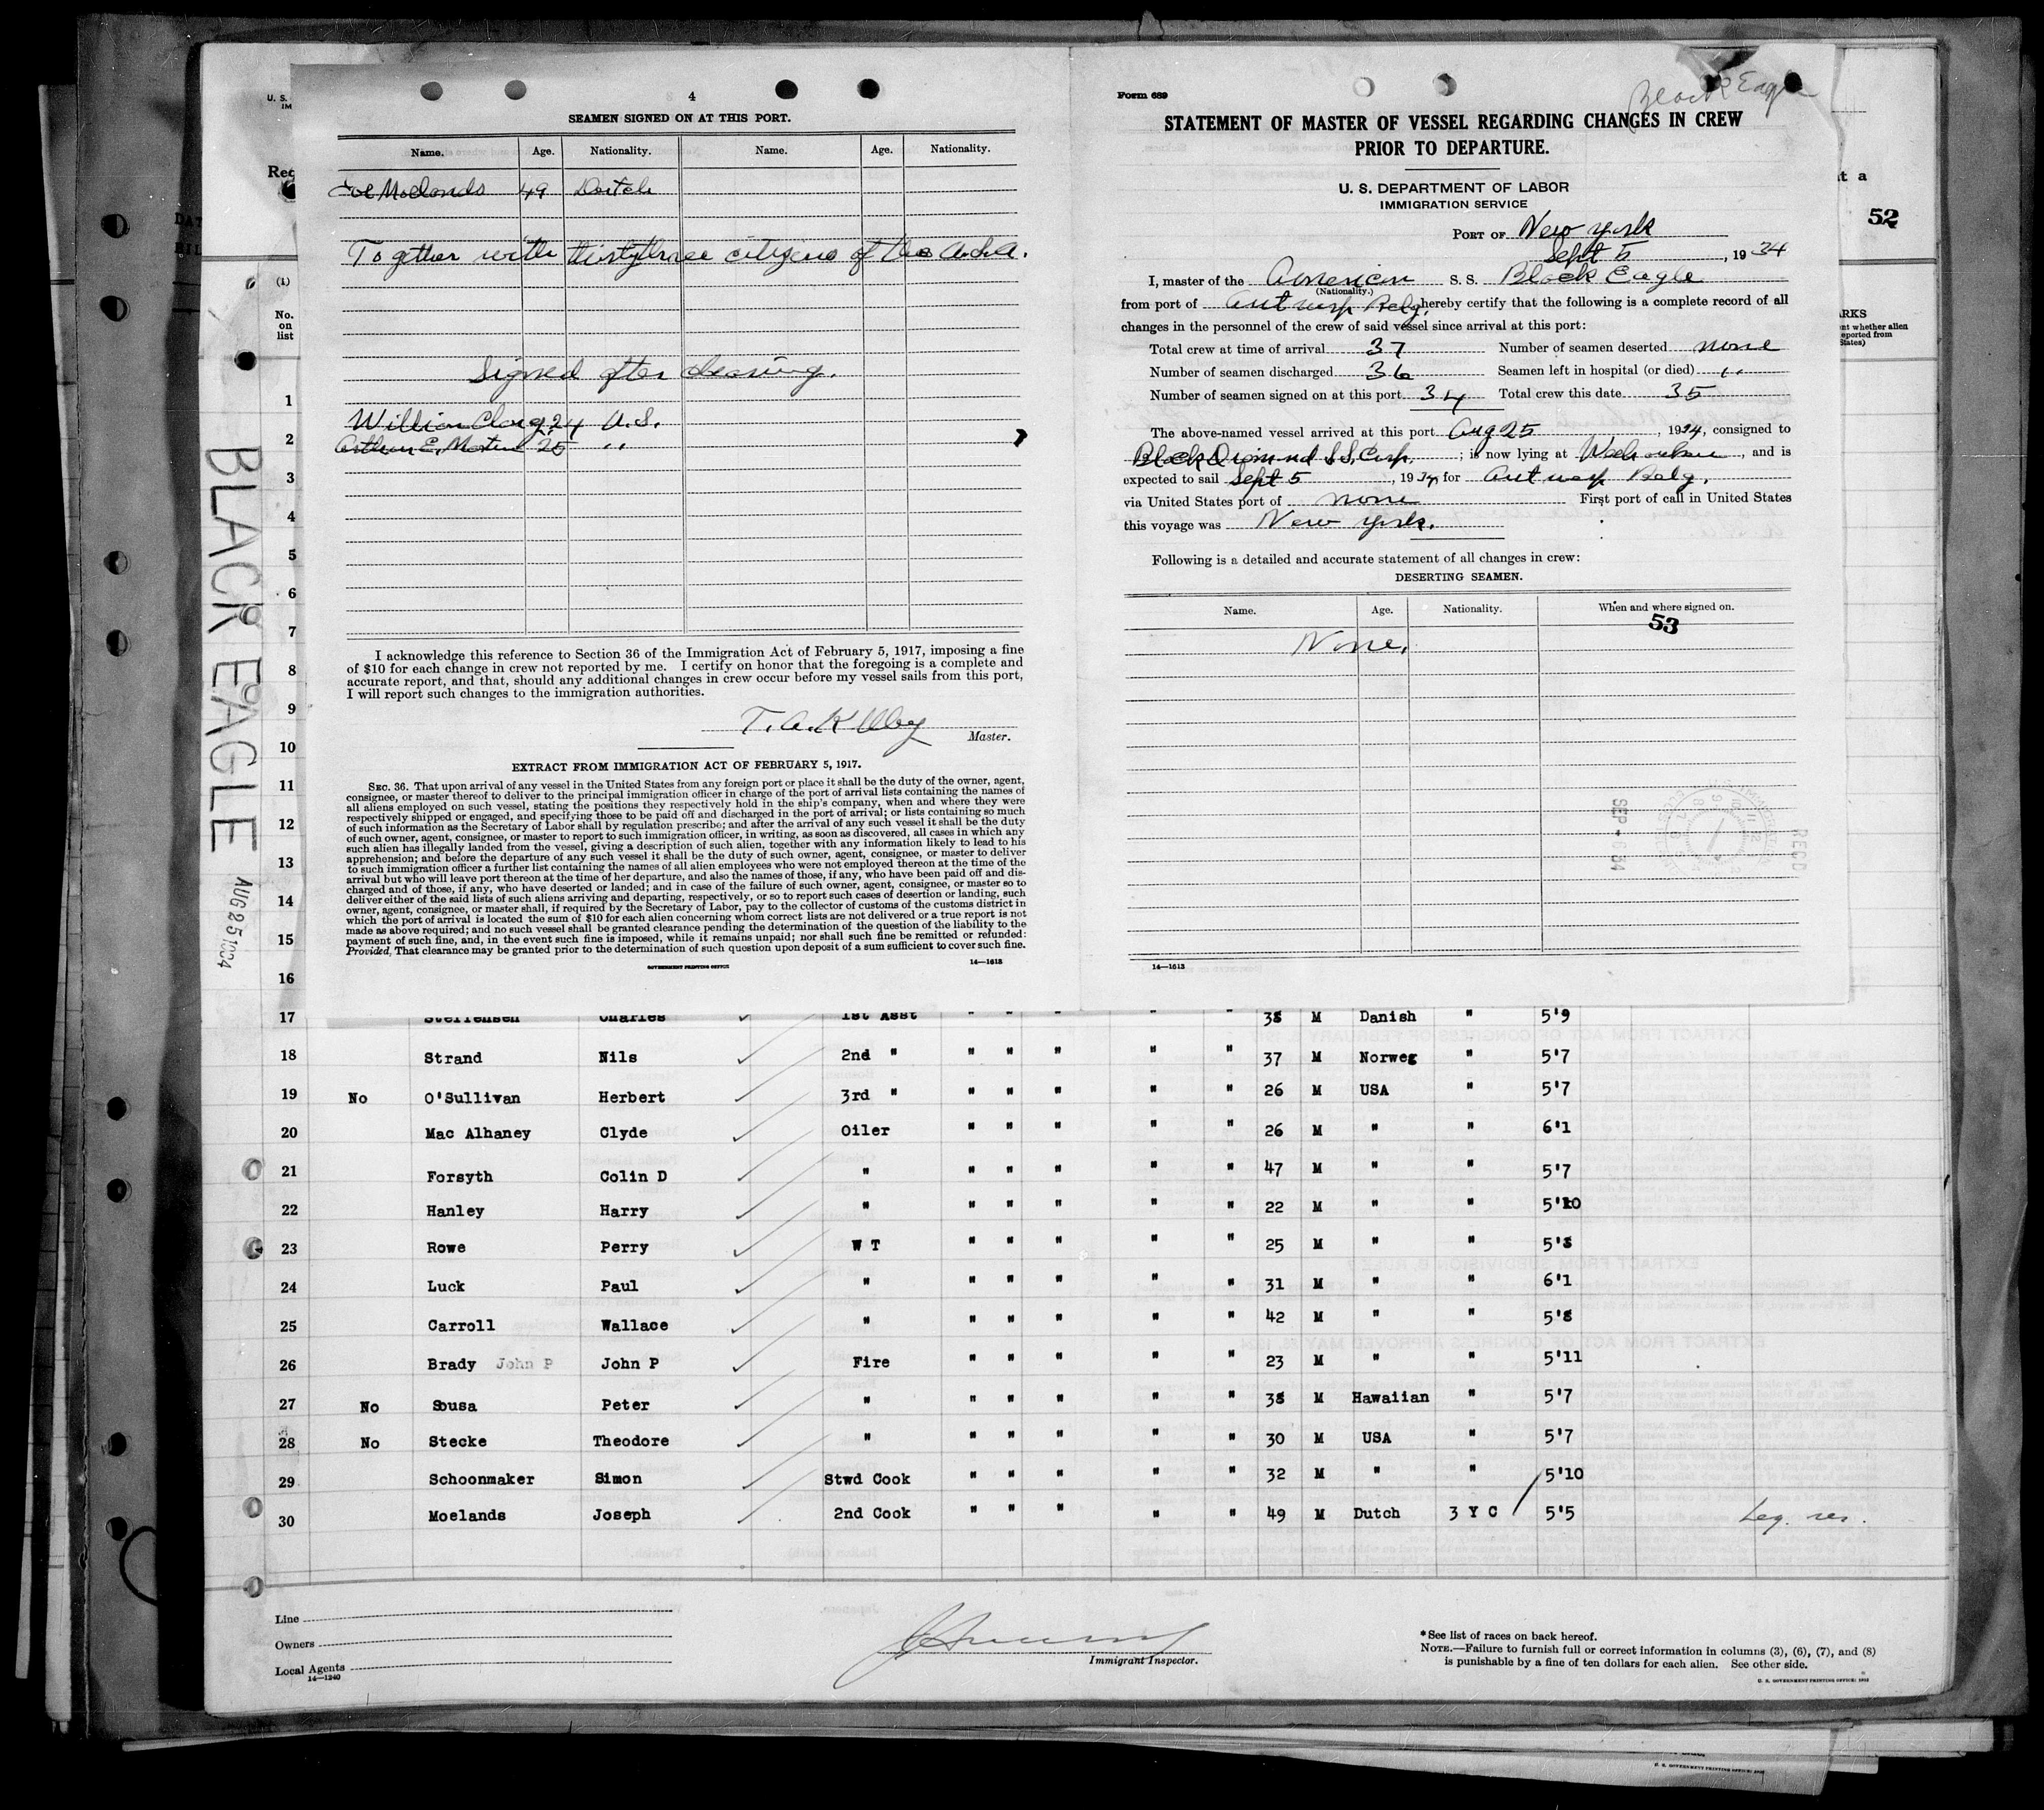 4
SEAMEN SIGNED ON AT THIS PORT.
Name. Age. Nationality. Name. Age. Nationality.
Joe Moelands 49 Dutch
Together with thirtythree citizens of the U.S.A.
Signed after clearing.
William 24 U.S.
Arthur E. 25 "
I acknowledge this reference to Section 36 of the Immigration Act of February 5, 1917, imposing a fine
of $10 for each change in crew not reported by me. I certify on honor that the foregoing is a complete and
accurate report, and that, should any additional changes in crew occur before my vessel sails from this port,
I will report such changes to the immigration authorities.
Master.
EXTRACT FROM IMMIGRATION ACT OF FEBRUARY 5, 1917.
SEC. 36. That upon arrival of any vessel in the United States from any foreign port or place it shall be the duty of the owner, agent,
consignee, or master thereof to deliver to the principal immigration officer in charge of the port of arrival lists containing the names of
all aliens employed on such vessel, stating the positions they respectively hold in the ship's company, when and where they were
respectively shipped or engaged, and specifying those to be paid off and discharged in the port of arrival; or lists containing so much
of such information as the Secretary of Labor shall by regulation prescribe; and after the arrival of any such vessel it shall be the duty
of such owner, agent, consignee, or master to report to such immigration officer, in writing, as soon as discovered, all cases in which any
such alien has illegally landed from the vessel, giving a description of such alien, together with any information likely to lead to his
apprehension; and before the departure of any such vessel it shall be the duty of such owner, agent, consignee, or master to deliver
to such immigration officer a further list containing the names of all alien employees who were not employed thereon at the time of the
arrival but who will leave port thereon at the time of her departure, and also the names of those, if any, who have been paid off and dis-
charged and of those, if any, who have deserted or landed; and in case of the failure of such owner, agent, consignee, or master so to
deliver either of the said lists of such aliens arriving and departing, respectively, or so to report such cases of desertion or landing, such
owner, agent, consignee, or master shall, if required by the Secretary of Labor, pay to the collector of customs of the customs district in
which the port of arrival is located the sum of $10 for each alien concerning whom correct lists are not delivered or a true report is not
made as above required; and no such vessel shall be granted clearance pending the determination of the question of the liability to the
payment of such fine, and, in the event such fine is imposed, while it remains unpaid; nor shall such fine be remitted or refunded:
Provided, That clearance may be granted prior to the determination of such question upon deposit of a sum sufficient to cover such fine.
GOVERNMENT PRINTING OFFICE 14—1613
Form 689
Black Eagle
STATEMENT OF MASTER OF VESSEL REGARDING CHANGES IN CREW
PRIOR TO DEPARTURE.
U. S. DEPARTMENT OF LABOR
IMMIGRATION SERVICE
PORT OF New York
Sept 5, 1934
I, master of the American S. S. Black Eagle
(Nationality.)
from port of Antwerp Belg, hereby certify that the following is a complete record of all
changes in the personnel of the crew of said vessel since arrival at this port:
Total crew at time of arrival 37 Number of seamen deserted none
Number of seamen discharged 36 Seamen left in hospital (or died) "
Number of seamen signed on at this port 34 Total crew this date 35
The above-named vessel arrived at this port Aug 25, 1934, consigned to
Black Diamond S.S. Corp. ; is now lying at Weehawken, and is
expected to sail Sept 5, 1934 for Antwerp Belg.
via United States port of none First port of call in United States
this voyage was New York.
Following is a detailed and accurate statement of all changes in crew:
DESERTING SEAMEN.
Name. Age. Nationality. When and where signed on.
53
None.
RECD
SEP - 6 34
14—1613
52
U. S.
(1)
No.
on
list
BLACK EAGLE AUG 25 1934
1
2
3
4
5
6
7
8
9
10
11
12
13
14
15
16
17 Steffensen Charles 1st Asst " " " " " 38 M Danish " 5'9
18 Strand Nils 2nd " " " " " " 37 M Norweg " 5'7
19 No O'Sullivan Herbert 3rd " " " " " " 26 M USA " 5'7
20 Mac Alhaney Clyde Oiler " " " " " 26 M " " 6'1
21 Forsyth Colin D " " " " " " 47 M " " 5'7
22 Hanley Harry " " " " " " 22 M " " 5'10
23 Rowe Perry W T " " " " " 25 M " " 5'8
24 Luck Paul " " " " " " 31 M " " 6'1
25 Carroll Wallace " " " " " " 42 M " " 5'8
26 Brady John P John P Fire " " " " " 23 M " " 5'11
27 No Sousa Peter " " " " " " 38 M Hawaiian " 5'7
28 No Stecke Theodore " " " " " " 30 M USA " 5'7
29 Schoonmaker Simon Stwd Cook " " " " " 32 M " " 5'10
30 Moelands Joseph 2nd Cook " " " " " 49 M Dutch 3 Y C 5'5 Leg. res.
Line
Owners
Local Agents
14—1240
Immigrant Inspector.
*See list of races on back hereof.
NOTE.—Failure to furnish full or correct information in columns (3), (6), (7), and (8)
is punishable by a fine of ten dollars for each alien. See other side.
U. S. GOVERNMENT PRINTING OFFICE